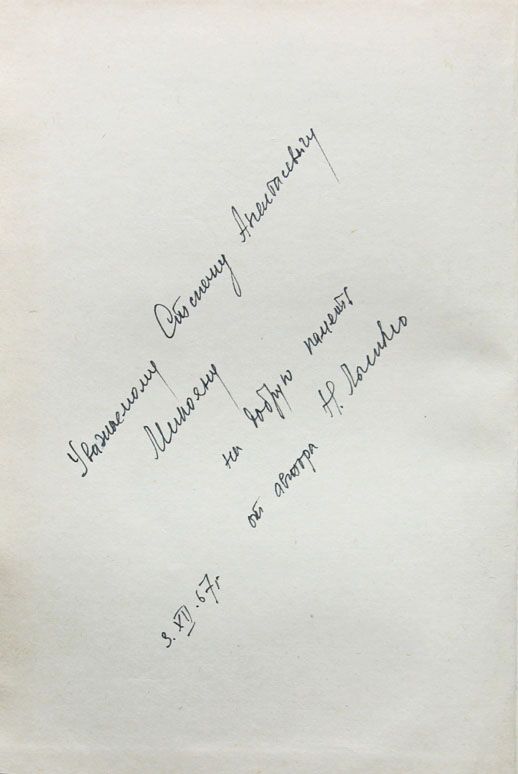 Уважаемому Степану Анастасовичу
Микояну
на добрую память
от автора Н.
3.XII.67г